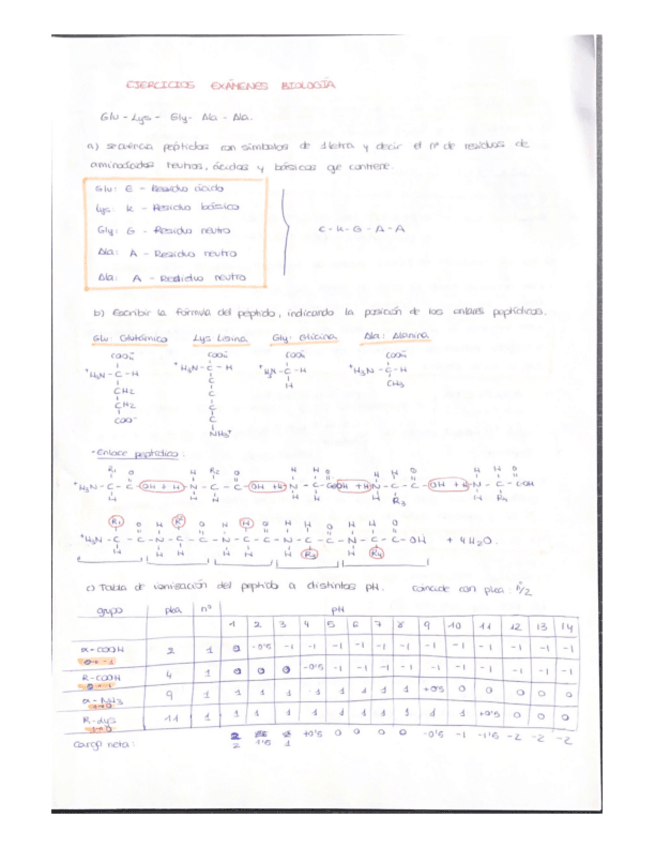 EJERCICIOS EXÁMENES BIOLOGÍA
Glu - Lys - Gly - Ala - Ala.
a) secuencia peptidos con símbolos de 1 letra y decir el nº de residuos de
aminoácidos neutros, ácidos y básicos que contiene.
Glu: E - Residuo ácido
Lys: K - Residuo básico
Gly: G - Residuo neutro
Ala: A - Residuo neutro
Ala: A - Residuo neutro
E - K - G - A - A
b) Escribir la fórmula del péptido, indicando la posición de los enlaces peptídicos.
Glu: Glutámico Lys Lisina Gly: Glicina Ala: Alanina
COO⁻ COO⁻ COO⁻ COO⁻
⁺H₃N - C - H ⁺H₃N - C - H ⁺H₃N - C - H ⁺H₃N - C - H
CH2 C H CH3
CH2 C
COO⁻ C
C
NH3⁺
- Enlace peptídico:
R1 O H R2 O H H O H H O H H O
⁺H3N - C - C - OH + H - N - C - C - OH + H - N - C - C - OH + H - N - C - C - OH + H - N - C - C - OH
H H H R3 R4
R1 O H R2 O H H O H H O H H O
⁺H3N - C - C - N - C - C - N - C - C - N - C - C - N - C - C - OH + 4H2O.
H H H R3 R4
c) Tabla de ionización del peptido a distintos pH. coincide con pka:
grupo pka nº pH
1 2 3 4 5 6 7 8 9 10 11 12 13 14
α-COOH 2 1 0 -0'5 -1 -1 -1 -1 -1 -1 -1 -1 -1 -1 -1 -1
R-COOH 4 1 0 0 0 -0'5 -1 -1 -1 -1 -1 -1 -1 -1 -1 -1
α-NH3 9 1 1 1 1 1 1 1 1 1 +0'5 0 0 0 0 0
R-Lys 11 1 1 1 1 1 1 1 1 1 1 1 +0'5 0 0 0
carga neta: 2 +0'5 0 0 0 0 -0'5 -1 -1'5 -2 -2 -2
2 1'5 1